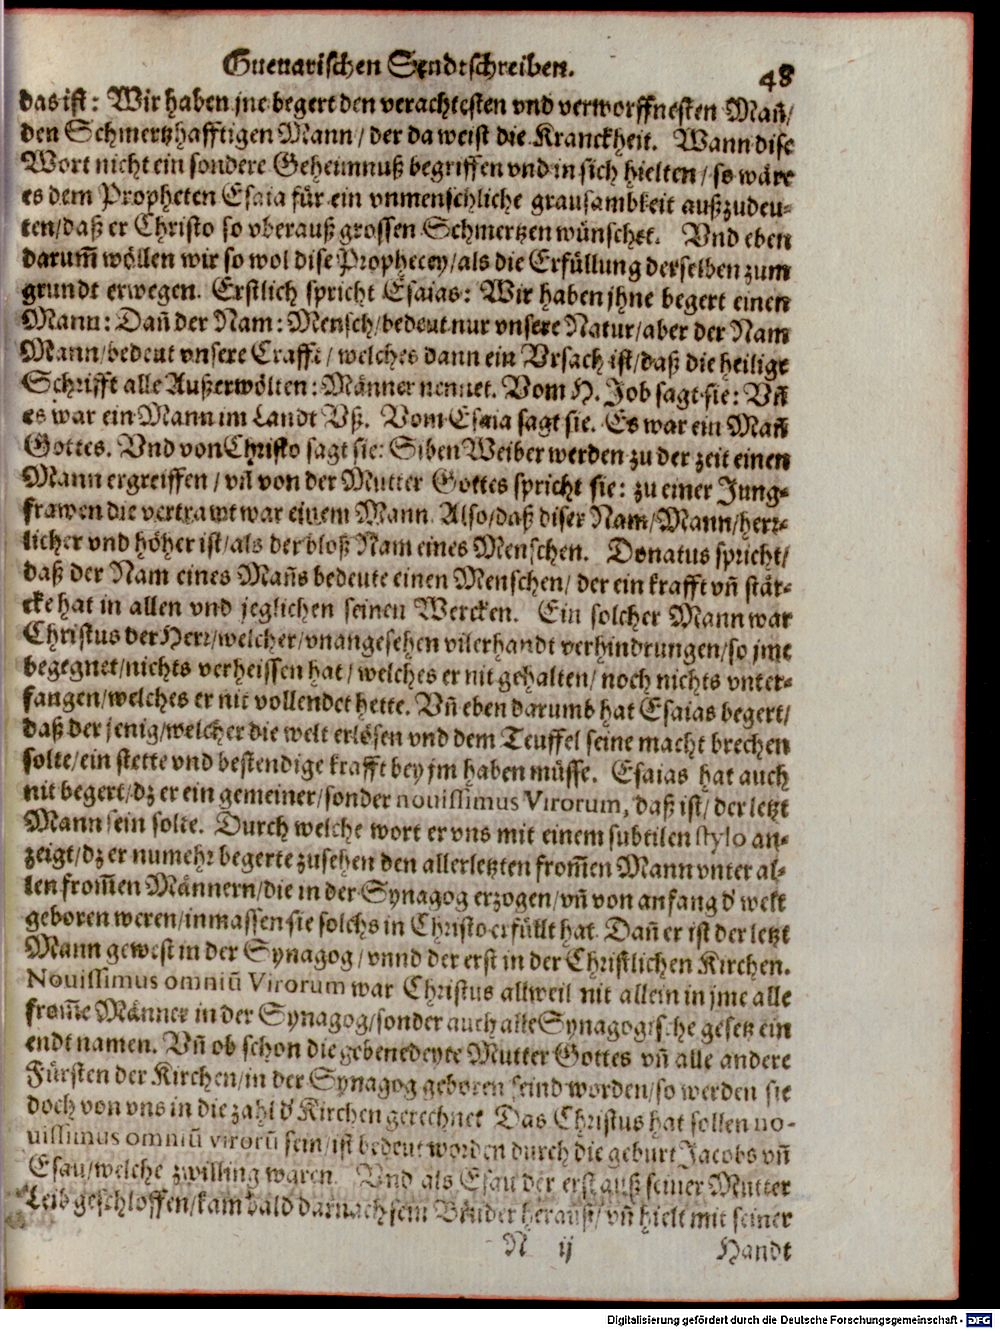 Gueuarischen Sendtschreiben.
48
das ist: Wir haben jne begert den verachtesten vnd verworffnesten Mañ/
den Schmertzhafftigen Mann/ der da weist die Kranckheit. Wann dise
Wort nicht ein sondere Geheimnuß begriffen vnd in sich hielten/ so wäre
es dem Propheten Esaia für ein vnmenschliche grausambkeit außzudeu-
ten/daß er Christo so vberauß grossen Schmertzen wünschet. Vnd eben
darum̃ wöllen wir so wol dise Prophecey/als die Erfüllung derselben zum
grundt erwegen. Erstlich spricht Esaias: Wir haben jhne begert einen
Mann: Dañ der Nam: Mensch/bedeut nur vnsere Natur/aber der Nam
Mann/bedeut vnsere Crafft/ welches dann ein Vrsach ist/daß die heilige
Schrifft alle Außerwölten: Männer nennet. Vom H. Job sagt sie: Vñ
es war ein Mann im Landt Vß. Vom Esaia sagt sie. Es war ein Mañ
Gottes. Vnd von Christo sagt sie: Siben Weiber werden zu der zeit einen
Mann ergreiffen/ vñ von der Mutter Gottes spricht sie: zu einer Jung-
frawen die vertrawt war einem Mann. Also/daß diser Nam/Mann/herr-
licher vnd höher ist/als der bloß Nam eines Menschen. Donatus spricht/
daß der Nam eines Mañs bedeute einen Menschen/ der ein krafft vñ stär-
cke hat in allen vnd jeglichen seinen Wercken. Ein solcher Mann war
Christus der Herr/welcher/vnangesehen vilerhandt verhindrungen/so jme
begegnet/nichts verheissen hat/ welches er nit gehalten/ noch nichts vnter-
fangen/welches er nit vollendet hette. Vñ eben darumb hat Esaias begert/
daß der jenig/welcher die welt erlösen vnd dem Teuffel seine macht brechen
solte/ein stette vnd bestendige krafft bey jm haben müsse. Esaias hat auch
nit begert/dz er ein gemeiner/sonder nouissimus Virorum, daß ist/ der letzt
Mann sein solte. Durch welche wort er vns mit einem subtilen stylo an-
zeigt/dz er numehr begerte zusehen den allerletzten from̃en Mann vnter al-
len from̃en Männern/die in der Synagog erzogen/vñ von anfang d' welt
geboren weren/inmassen sie solchs in Christo erfüllt hat. Dañ er ist der letzt
Mann gewest in der Synagog/ vnnd der erst in der Christlichen Kirchen.
Nouissimus omniũ Virorum war Christus allweil nit allein in jme alle
from̃e Männer in der Synagog/sonder auch alle Synagogische gesetz ein
endt namen. Vñ ob schon die gebenedeyte Mutter Gottes vñ alle andere
Fürsten der Kirchen/in der Synagog geboren seind worden/so werden sie
doch von vns in die zahl d' Kirchen gerechnet Das Christus hat sollen no-
uissimus omniũ virorũ sein/ist bedeut worden durch die geburt Jacobs vñ
Esau/welche zwilling waren. Vnd als Esau der erst auß seiner Mutter
Leib geschloffen/kam bald darnach sein Bruder herauß/ vñ hielt mit seiner
N ij
Handt
Digitalisierung gefördert durch die Deutsche Forschungsgemeinschaft - DFG